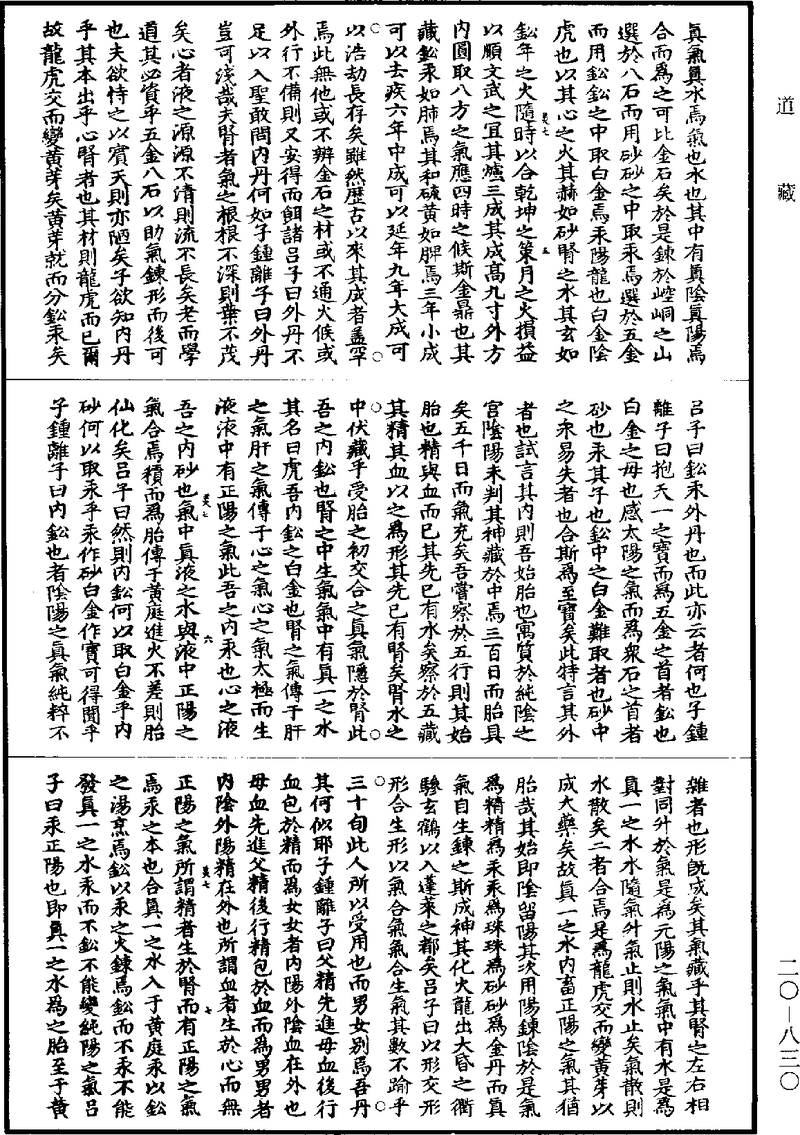 道藏
眞氣眞水焉氣也水也其中有眞陰眞陽焉
合而爲之可比金石矣於是鍊於崆峒之山
選於八石而用砂砂之中取汞焉選於五金
而用鈆鈆之中取白金焉汞陽龍也白金陰
虎也以其心之火其赫如砂腎之水其玄如
鈆年之火隨時以合乾坤之策月之火損益
以順文武之宜其爐三成其成髙九寸外方
内圓取八方之氣應四時之候斯金鼎也其
藏鈆汞如肺焉其和硫黄如脾焉三年小成
可以去疾六年中成可以延年九年大成可
以浩劫長存矣雖然歴古以來其成者蓋罕
焉此無他或不辨金石之材或不通火候或
外行不備則又安得而餌諸吕子曰外丹不
足以入聖敢問内丹何如子鍾離子曰外丹
豈可淺哉夫腎者氣之根根不深則葉不茂
矣心者液之源源不清則流不長矣老而學
道其必資乎五金八石以助氣鍊形而後可
也夫欲恃之以賓天則亦陋矣子欲知内丹
乎其本出乎心腎者也其材則龍虎而已爾
故龍虎交而變黄芽矣黄芽就而分鈆汞矣
吕子曰鈆汞外丹也而此亦云者何也子鍾
離子曰抱天一之寳而爲五金之首者鈆也
白金之母也感太陽之氣而爲衆石之首者
砂也汞其子也鈆中之白金難取者也砂中
之汞易失者也合斯爲至寳矣此特言其外
者也試言其内則吾始胎也寓質於純陰之
宫陰陽未判其神藏於中焉三百日而胎具
矣五千日而氣充矣吾嘗察於五行則其始
胎也精與血而已其先已有水矣察於五藏
其精其血以之爲形其先已有腎矣腎水之
中伏藏乎受胎之初交合之眞氣隱於腎此
吾之内鈆也腎之中生氣氣中有眞一之水
其名曰虎吾内鈆之白金也腎之氣傳于肝
之氣肝之氣傳于心之氣心之氣太極而生
液液中有正陽之氣此吾之内汞也心之液
吾之内砂也氣中眞液之水與液中正陽之
氣合焉積而爲胎傳于黄庭進火不差則胎
仙化矣吕子曰然則内鈆何以取白金乎内
砂何以取汞乎汞作砂白金作寳可得聞乎
子鍾離子曰内鈆也者陰陽之眞氣純粹不
雜者也形旣成矣其氣藏乎其腎之左右相
對同升於氣是爲元陽之氣氣中有水是爲
眞一之水水隨氣升氣止則水止矣氣散則
水散矣二者合焉是爲龍虎交而變黄芽以
成大藥矣故眞一之水内畜正陽之氣其猶
胎哉其始即陰留陽其次用陽鍊陰於是氣
爲精精爲汞汞爲珠珠爲砂砂爲金丹而眞
氣自生鍊之斯成神其化火龍出大昏之衢
驂玄鶴以入蓬萊之都矣吕子曰以形交形
形合生形以氣合氣氣合生氣其數不踰乎
三十旬此人所以受用也而男女别焉吾丹
其何似耶子鍾離子曰父精先進母血後行
血包於精而爲女女者内陽外陰血在外也
母血先進父精後行精包於血而爲男男者
内陰外陽精在外也所謂血者生於心而無
正陽之氣所謂精者生於腎而有正陽之氣
焉汞之本也合眞一之水入于黄庭汞以鈆
之湯烹焉鈆以汞之火鍊焉鈆而不汞不能
發眞一之水汞而不鈆不能變純陽之氣吕
子曰汞正陽也即眞一之水爲之胎至于黄
二〇—八三〇